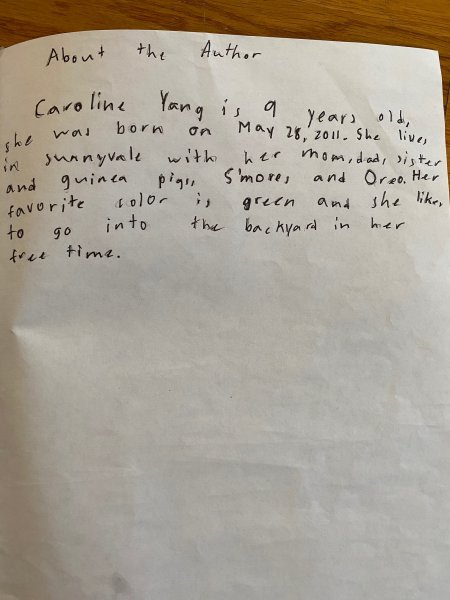 About the Author
Caroline Yang is 9 years old,
she was born on May 28, 2011. She lives
in sunnyvale with her mom, dad, sister
and guinea pigs, S'mores and Oreo. Her
favorite color is green and she likes
to go into the backyard in her
free time.